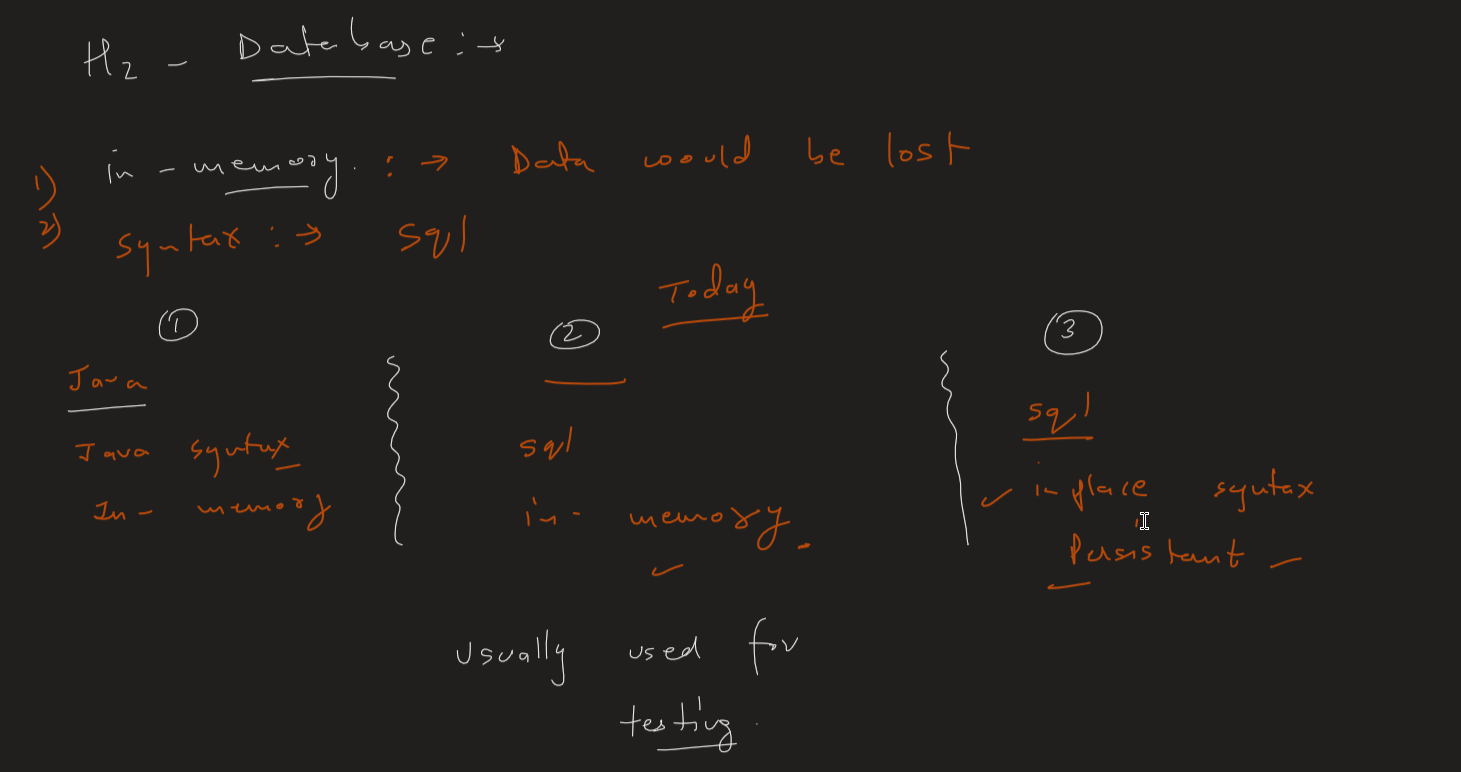 H2 - Database :→
1) in - memory. :→ Data would be lost
2) syntax :→ sql
Today
①
Java
Java syntax
In - memory
②
sql
in - memory.
③
sql
✓ in place syntax
Persistant
usually used for
testing.